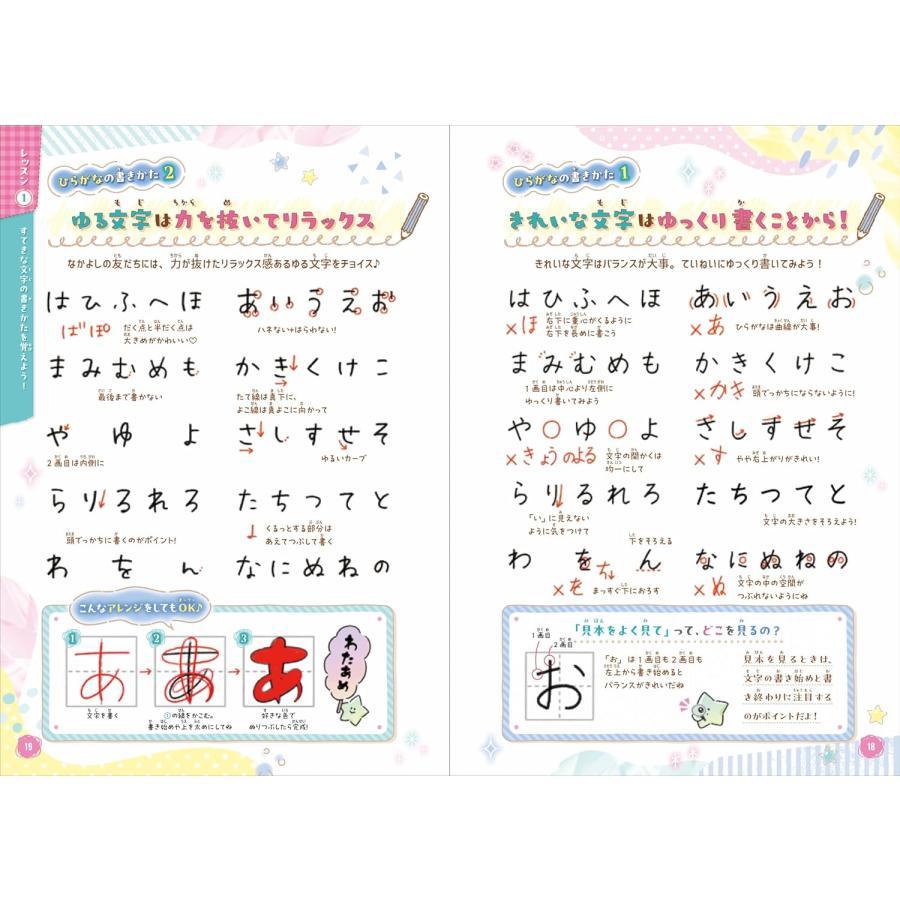 ひらがなの書きかた 1
きれいな文字はゆっくり書くことから!
きれいな文字はバランスが大事。ていねいにゆっくり書いてみよう!
あいうえお
×あ
ひらがなは曲線が大事!
かきくけこ
×かき
頭でっかちにならないように!
さしすせそ
×す
やや右上がりがきれい!
たちつてと
文字の大きさをそろえよう!
なにぬねの
×ぬ
文字の中の空間が
つぶれないようにね
はひふへほ
×ほ
右下に重心がくるように
右下を長めに書こう
まみむめも
1画目は中心より左側に
ゆっくり書いてみよう
や ゆ よ
×きょうのよる
文字の間かくは
均一にして
らりるれろ
「い」に見えない
ように気をつけて
下をそろえる
わ を ん
×を
ち
まっすぐ下におろす
「見本をよく見て」って、どこを見るの?
1画目
2画目
お
「お」は1画目も2画目も
左上から書き始めると
バランスがきれいだね
見本を見るときは、
文字の書き始めと書
き終わりに注目する
のがポイントだよ!
18
レッスン1
すてきな文字の書きかたを覚えよう!
ひらがなの書きかた 2
ゆる文字は力を抜いてリラックス
なかよしの友だちには、力が抜けたリラックス感あるゆる文字をチョイス♪
あいうえお
ハネない+はらわない!
かきくけこ
たて線は真下に、
よこ線は真よこに向かって
さしすせそ
ゆるいカーブ
たちつてと
くるっとする部分は
あえてつぶして書く
なにぬねの
はひふへほ
ばぽ
だく点と半だく点は
大きめがかわいい♡
まみむめも
最後まで書かない
や ゆ よ
2画目は内側に
らりるれろ
頭でっかちに書くのがポイント!
わ を ん
こんなアレンジをしてもOK♪
1
あ
文字を書く
2
あ
①の線をかこむ。
書き始めや上を太めにしてね
3
あ
好きな色で
ぬりつぶしたら完成!
わたあめ
19